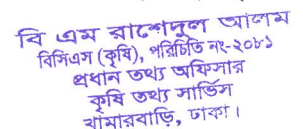 বি এম রাশেদুল আলম
বিসিএস (কৃষি), পরিচিতি নং-২০৮১
প্রধান তথ্য অফিসার
কৃষি তথ্য সার্ভিস
খামারবাড়ি, ঢাকা।